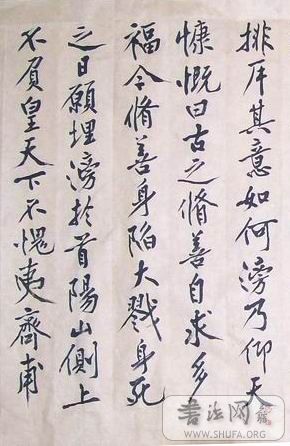 排斥其意如何滂乃仰天
慷慨曰古之脩善自求多
福今脩善身陷大戮身死
之日願埋滂於首陽山側上
不負皇天下不愧夷齊甫
書法网
WWW.SHUFA.ORG